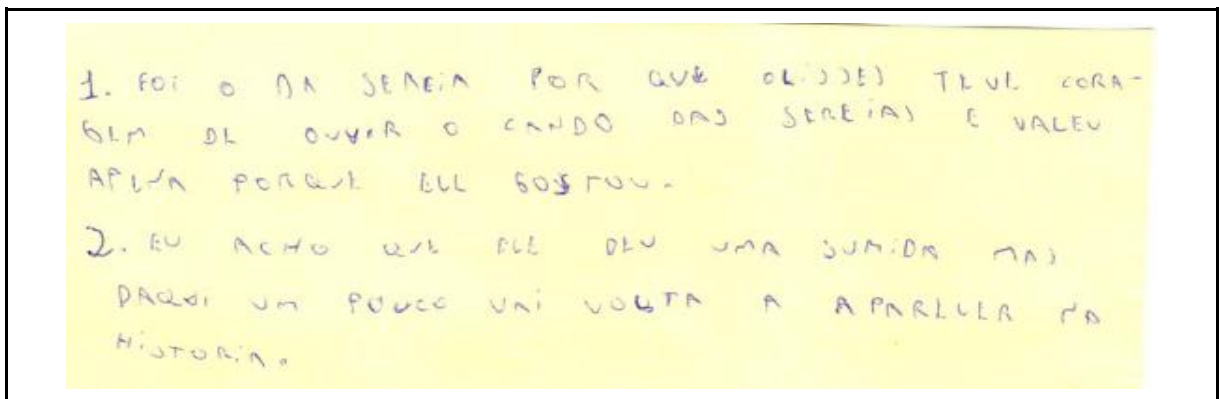 1. FOI O DA SEREIA POR QUE OLISSES TEVE CORA-
GEM DE OUVIR O CANDO DAS SEREIAS E VALEU
APENA PORQUE ELE GOSTOU.
2. EU ACHO QUE ELE DEU UMA SUMIDA MAS
DAQUI UM POUCO VAI VOLTA A APARECER NA
HISTORIA.